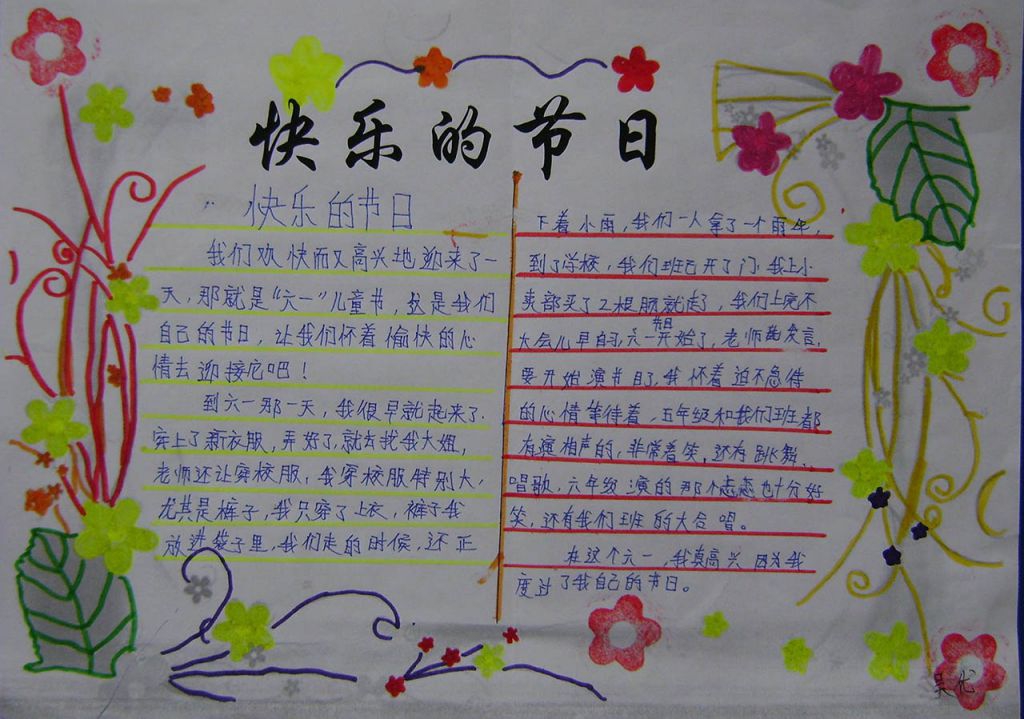 快乐的节日
快乐的节日
我们欢快而又高兴地迎来了一
天，那就是“六一”儿童节，这是我们
自己的节日，让我们怀着愉快的心
情去迎接它吧！
到六一那一天，我很早就起来了.
穿上了新衣服，弄好了就去找我大姐，
老师还让穿校服，我穿校服特别大，
尤其是裤子，我只穿了上衣，裤子我
放进袋子里，我们走的时候，还正
下着小雨，我们一人拿了一个雨伞，
到了学校，我们班已开了门，我上小
卖部买了2根肠就走了，我们上完不
大会儿早自习，六一节目开始了，老师发言，
要开始演节目了，我怀着迫不急待
的心情等待着，五年级和我们班都
有演相声的，非常着笑，还有跳舞、
唱歌，六年级演的那个也十分好
笑，还有我们班的大合唱。
在这个六一，我真高兴因为我
度过了我自己的节日。